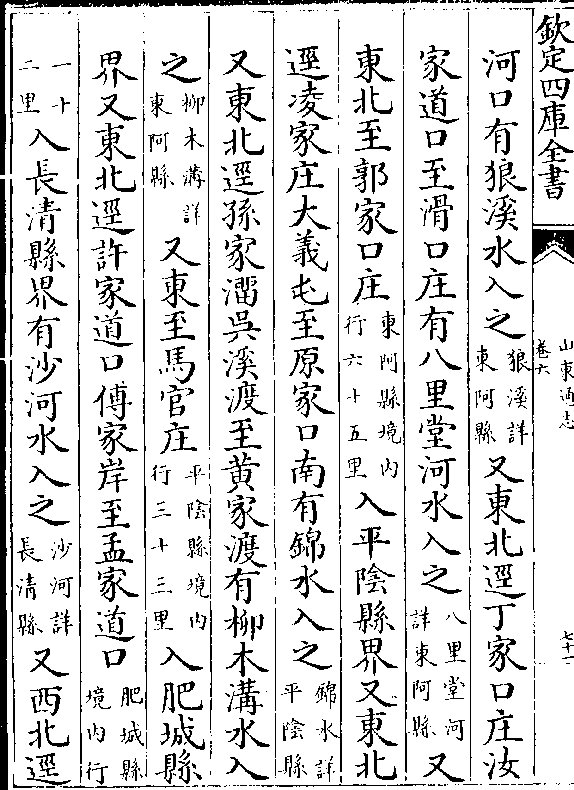 欽定四庫全書
山東通志
卷六
七十一
河口有狼溪水入之狼溪詳東阿縣又東北逕丁家口庄汝
家道口至滑口庄有八里堂河水入之八里堂河詳東阿縣又
東北至郭家口庄東阿縣境内行六十五里入平隂縣界又東北
逕凌家庄大義屯至原家口南有錦水入之錦水詳平隂縣
又東北逕孫家溜吳溪渡至黄家渡有柳木溝水入
之柳木溝詳東阿縣又東至馬官庄平隂縣境内行三十三里入肥城縣
界又東北逕許家道口傅家岸至孟家道口肥城縣境内行
一十二里入長清縣界有沙河水入之沙河詳長清縣又西北逕